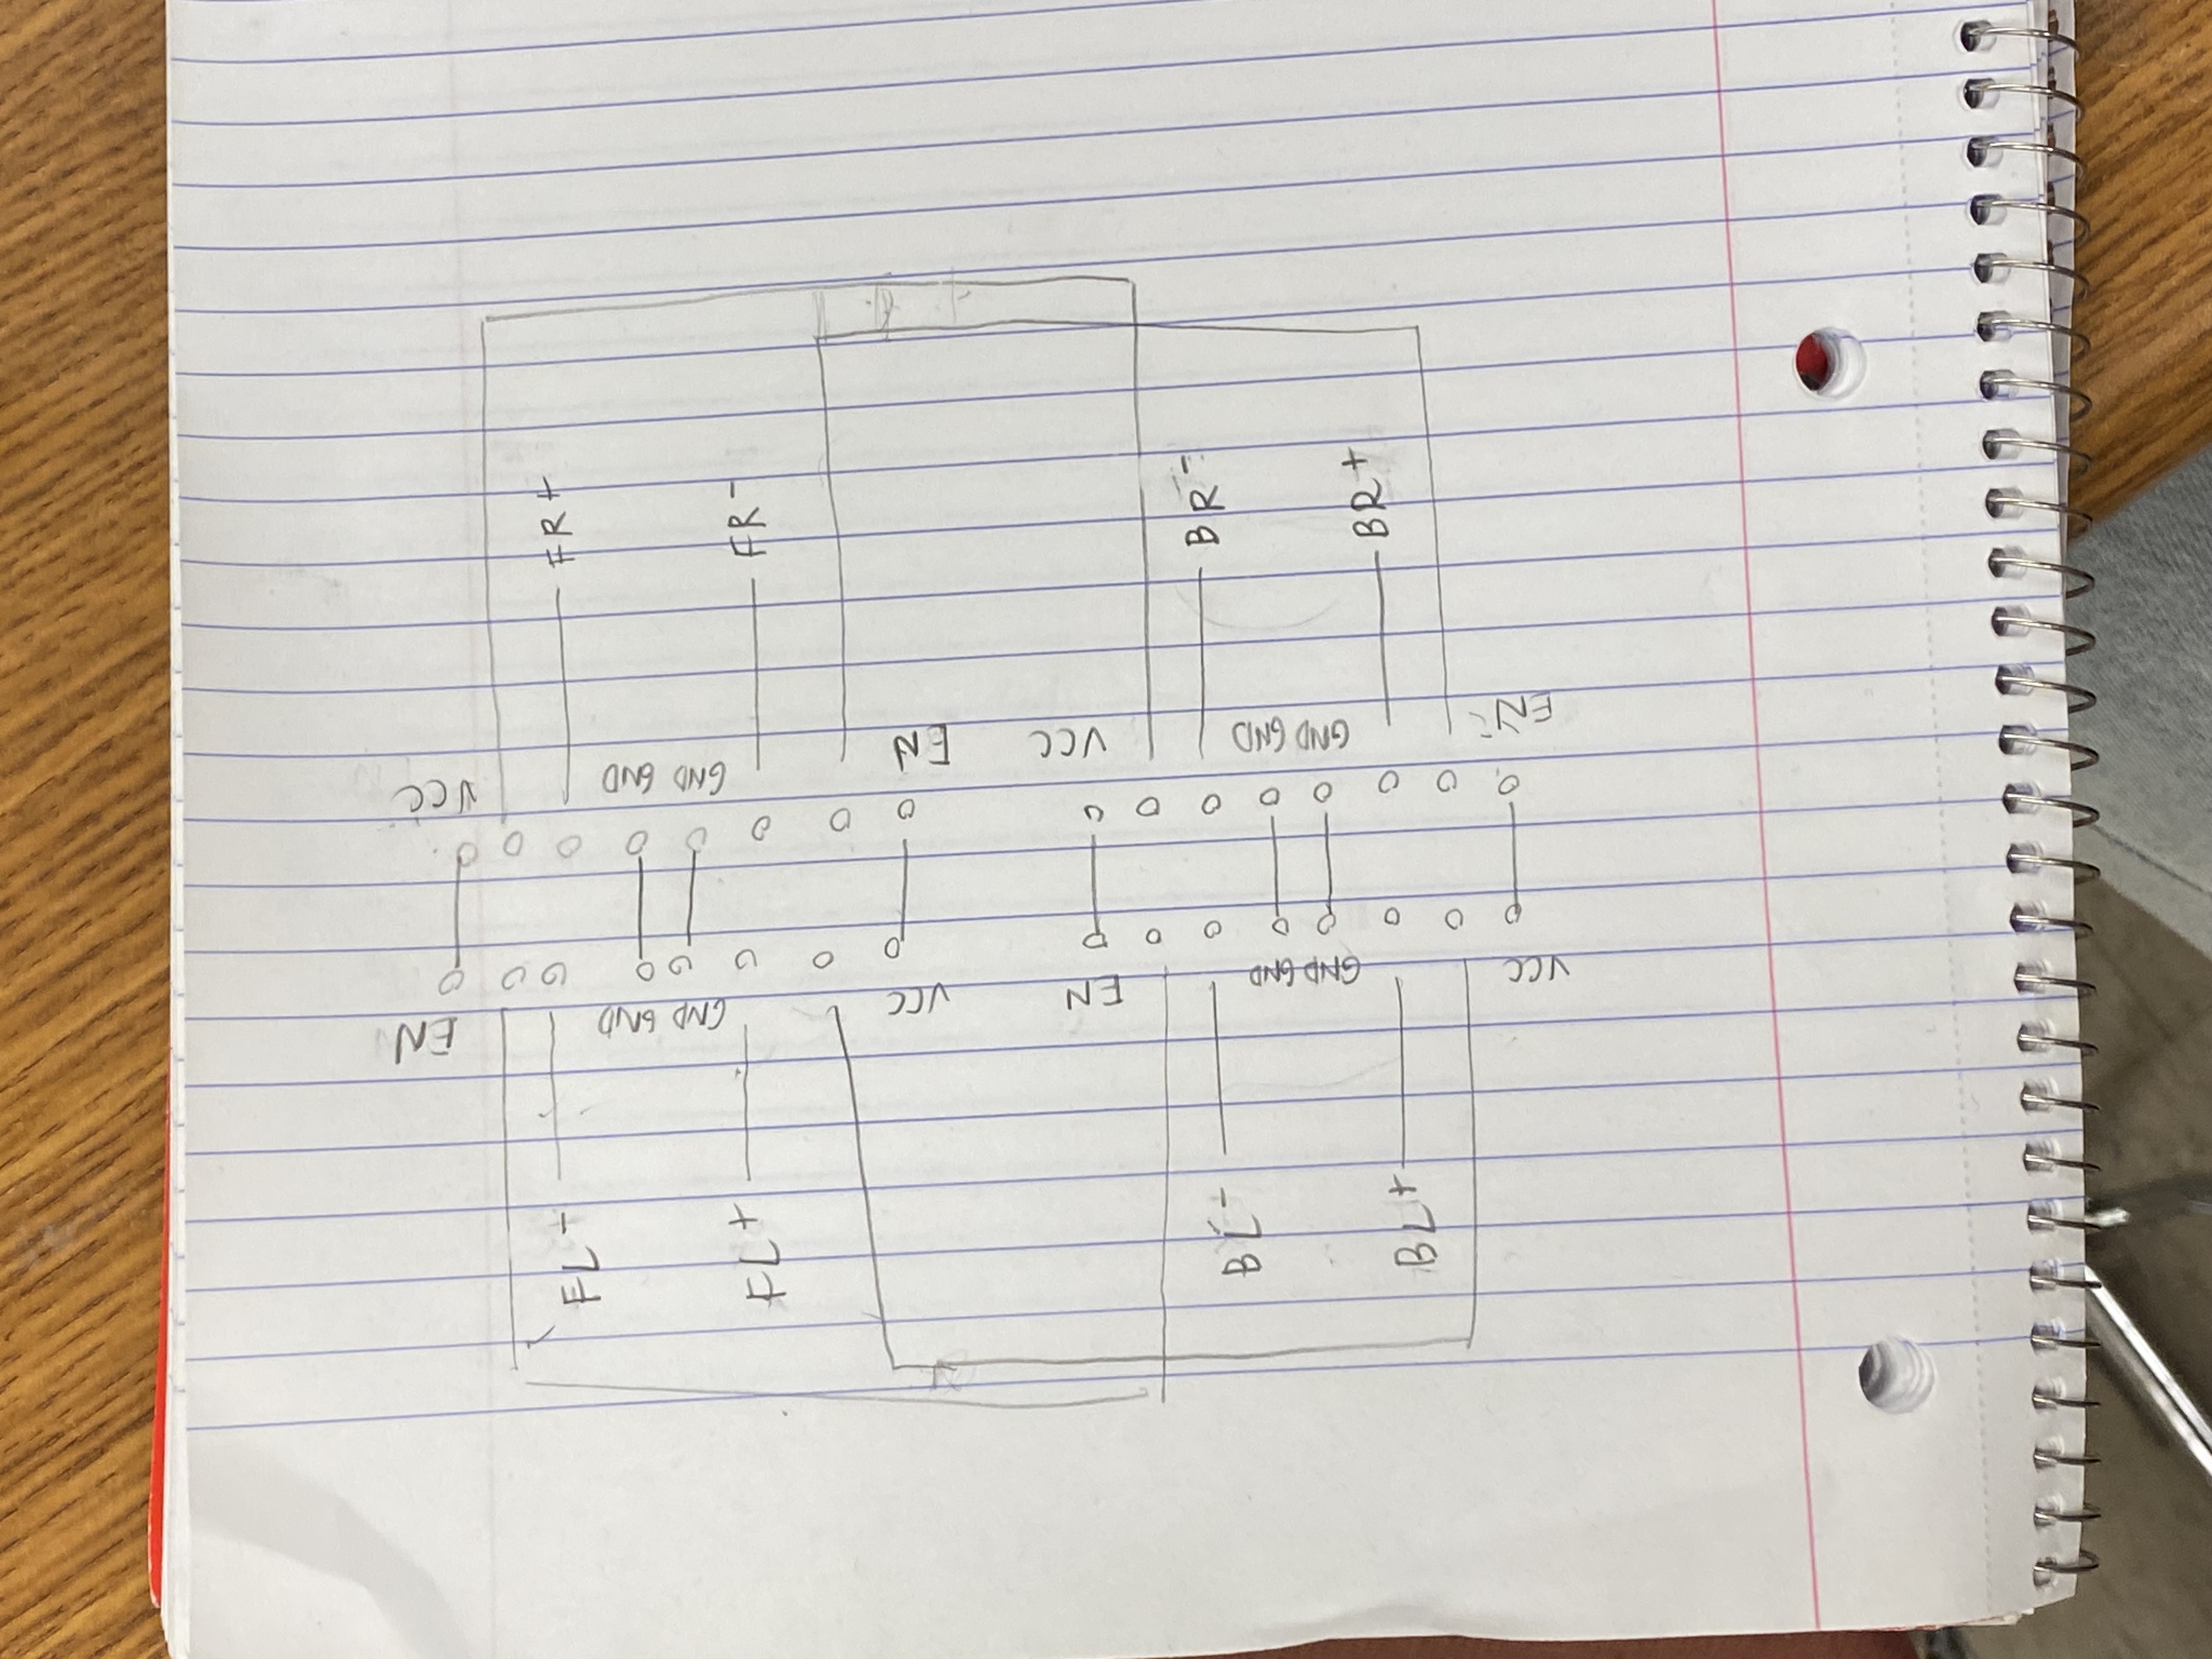 EN
VCC
FL-
FR+
GND GND
GND GND
FL+
FR-
VCC
EN
EN
VCC
BL-
BR-
GND GND
GND GND
BL+
BR+
VCC
EN